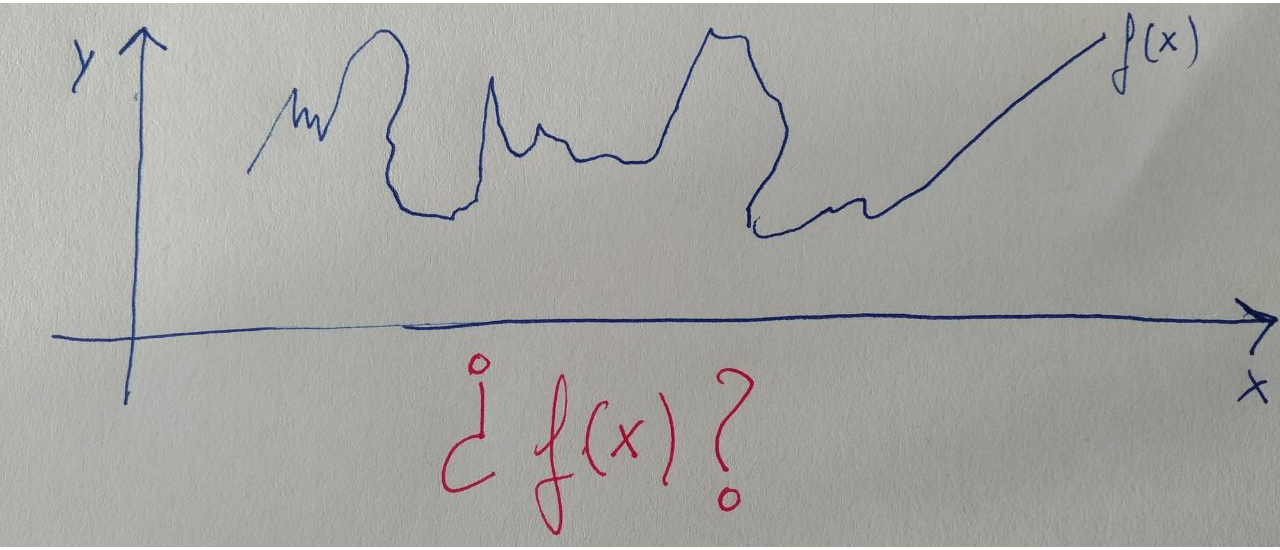 y
f(x)
x
¿f(x)?